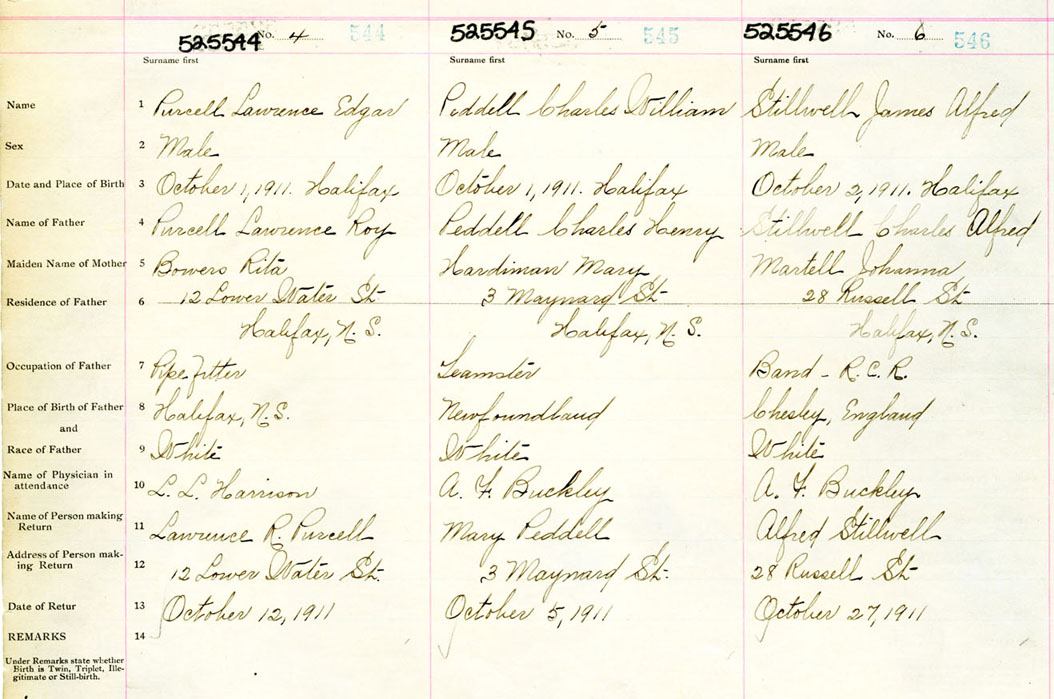 525544 No. 4 544 525545 No. 5 545 525546 No. 6 546
Surname first Surname first Surname first
Name 1 Purcell Lawrence Edgar Peddell Charles William Stillwell James Alfred
Sex 2 Male Male Male
Date and Place of Birth 3 October 1, 1911. Halifax October 1, 1911. Halifax October 2, 1911. Halifax
Name of Father 4 Purcell Lawrence Roy Peddell Charles Henry Stillwell Charles Alfred
Maiden Name of Mother 5 Bowers Rita Hardiman Mary Martell Johanna
Residence of Father 6 12 Lower Water St. 3 Maynard St. 28 Russell St
Halifax, N. S. Halifax, N. S. Halifax, N. S.
Occupation of Father 7 Pipe fitter Teamster Band - R. C. R.
Place of Birth of Father 8 Halifax, N. S. Newfoundland Chesley, England
and
Race of Father 9 White White White
Name of Physician in
attendance 10 L. L. Harrison A. F. Buckley A. F. Buckley
Name of Person making
Return 11 Lawrence R. Purcell Mary Peddell Alfred Stillwell
Address of Person mak-
ing Return 12 12 Lower Water St. 3 Maynard St. 28 Russell St
Date of Retur 13 October 12, 1911 October 5, 1911 October 27, 1911
REMARKS 14
Under Remarks state whether
Birth is Twin, Triplet, Ille-
gitimate or Still-birth.